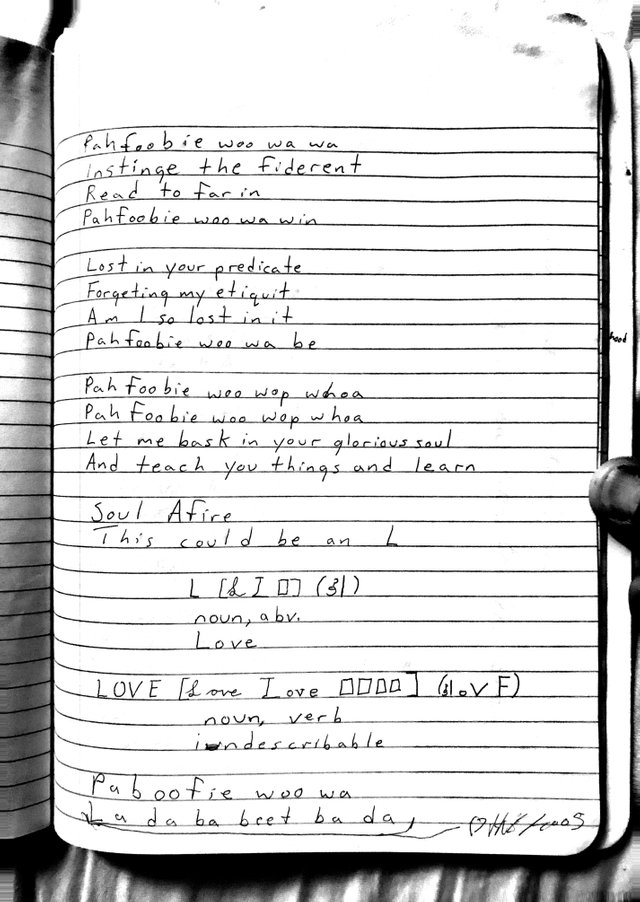 Pahfoobie woo wa wa
Instinge the fiderent
Read to far in
Pahfoobie woo wa win
Lost in your predicate
Forgeting my etiquit
Am I so lost in it
Pahfoobie woo wa be
Pah foobie woo wop whoa
Pah foobie woo wop whoa
Let me bask in your glorious soul
And teach you things and learn
Soul Afire
This could be an L
L [L I □] (31)
noun, abv.
Love
LOVE [Love Iove □□□□] (31ovF)
noun, verb
indescribable
Paboofie woo wa
La da ba beet ba da,
hood